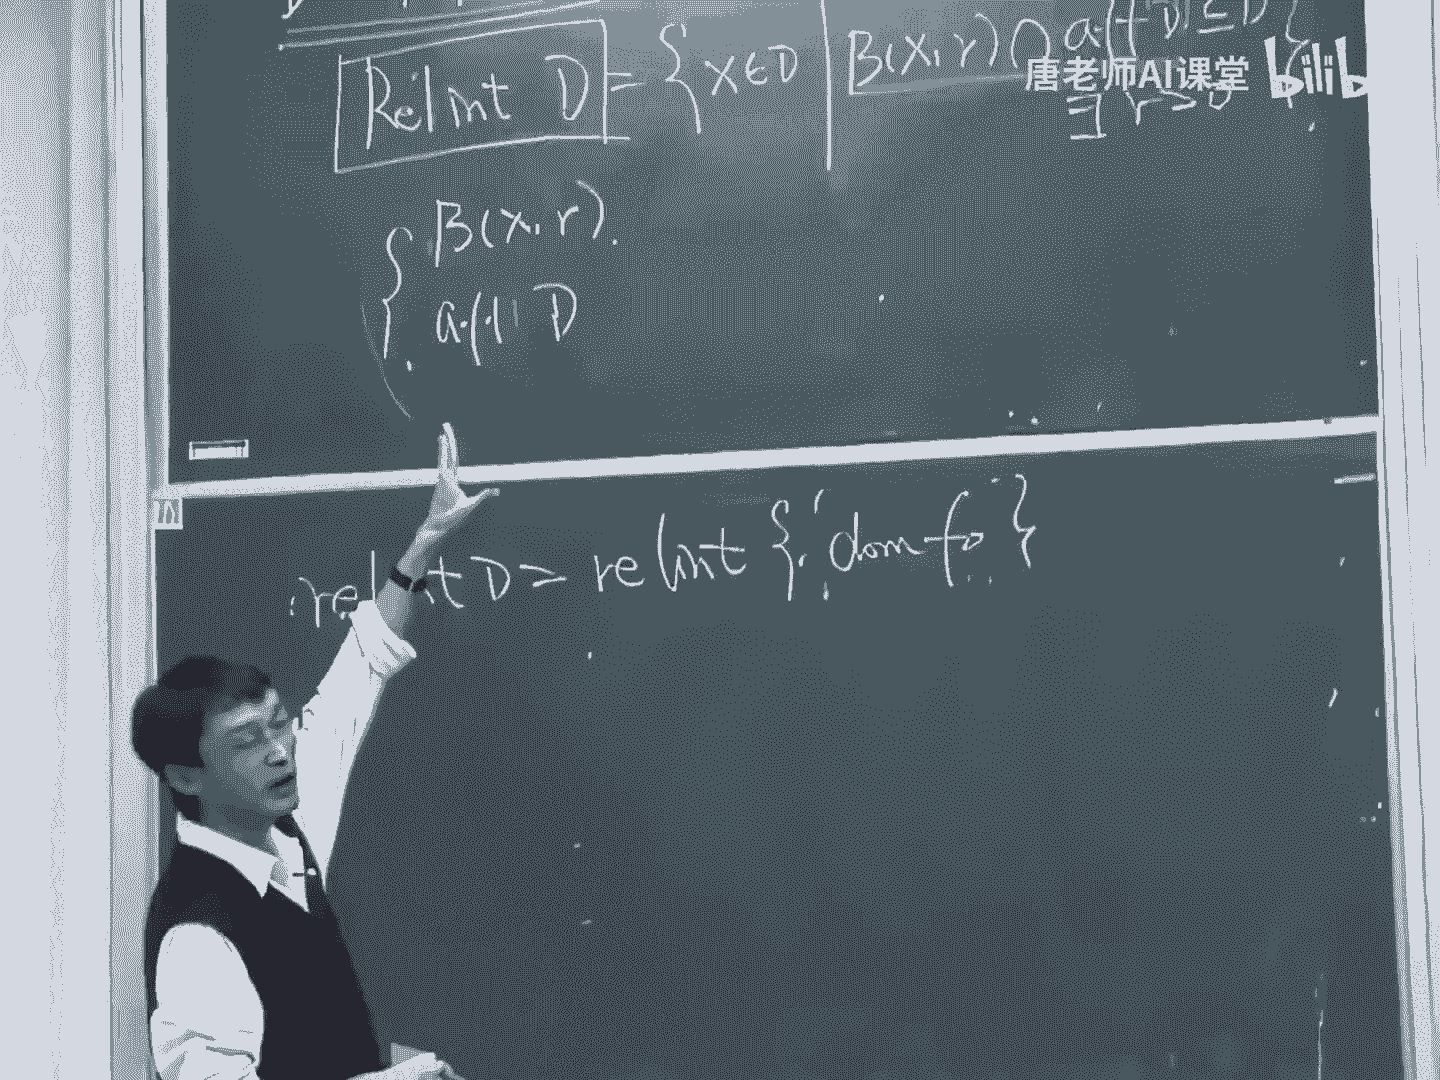 RelInt D = { x∈D | B(x, r) ∩ aff D ⊆ D }
唐老师AI课堂 bilib
∃ r>0
{ B(x, r).
aff D
relint D = relint { dom f₀ }